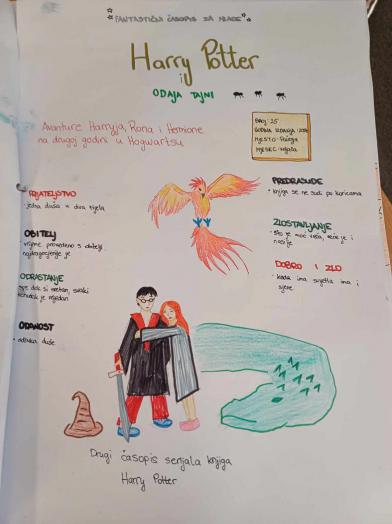 FANTASTIČNI ČASOPIS ZA MLADE
Harry Potter
i
ODAJA TAJNI
Avanture Harryja, Rona i Hermione
na drugoj godini u Hogwartsu
BROJ: 25
GODINA IZDANJA:
MJESTO: Požega
MJESEC: veljača
PRIJATELJSTVO
jedna duša u dva tijela
OBITELJ
vrijeme provedeno s obitelji
najdragocjenije je
ODRASTANJE
dok si sretan, svaki
je
ODANOST
odlika duše
PREDRASUDE
knjiga se ne sudi po koricama
ZLOSTAVLJANJE
što je moć veća, veće je i
nasilje
DOBRO I ZLO
kada ima svjetla ima i
sjene
Drugi časopis serijala knjiga
Harry Potter